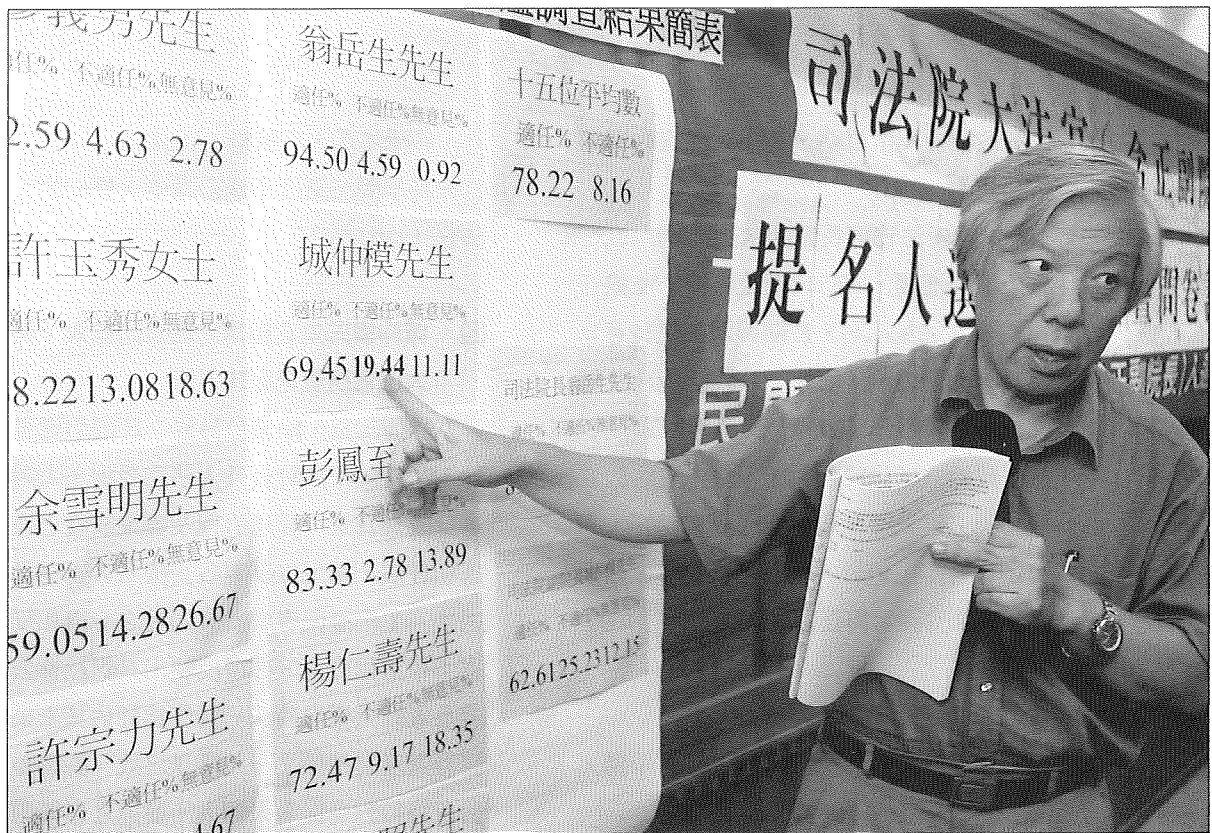 義男先生
適任% 不適任% 無意見%
2.59 4.63 2.78
許玉秀女士
適任% 不適任% 無意見%
8.22 13.08 18.63
余雪明先生
適任% 不適任% 無意見%
59.05 14.28 26.67
許宗力先生
適任% 不適任% 無意見%
4.67
翁岳生先生
適任% 不適任% 無意見%
94.50 4.59 0.92
城仲模先生
適任% 不適任% 無意見%
69.45 19.44 11.11
彭鳳至
適任% 不適
83.33 2.78 13.89
楊仁壽先生
適任% 不適任% 無意見%
72.47 9.17 18.35
先生
調查結果簡表
十五位平均數
適任% 不適任%
78.22 8.16
62.61 25.23 12.15
司法院大法官(含正副
提名人選 問卷
民間